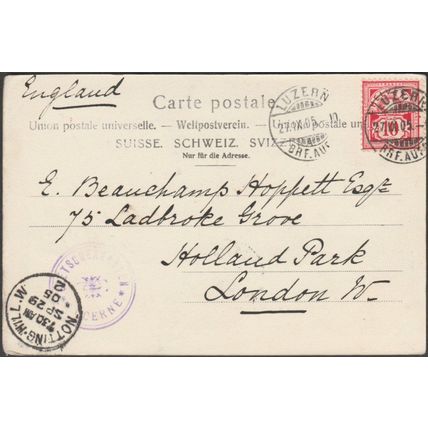 England
Carte postale.
Union postale universelle. — Weltpostverein. — Unione postale universale.
SUISSE. SCHWEIZ. SVIZZERA.
Nur für die Adresse.
LUZERN
27.IX.05.
BRF.AUF
LUZERN
27.IX.05.
BRF.AUF
E. Beauchamp Hoppett Esqre
75 Ladbroke Grove
Holland Park
London W.
NOTTING-HILL.W.
7.30 AM
SP 29
05
LUCERNE